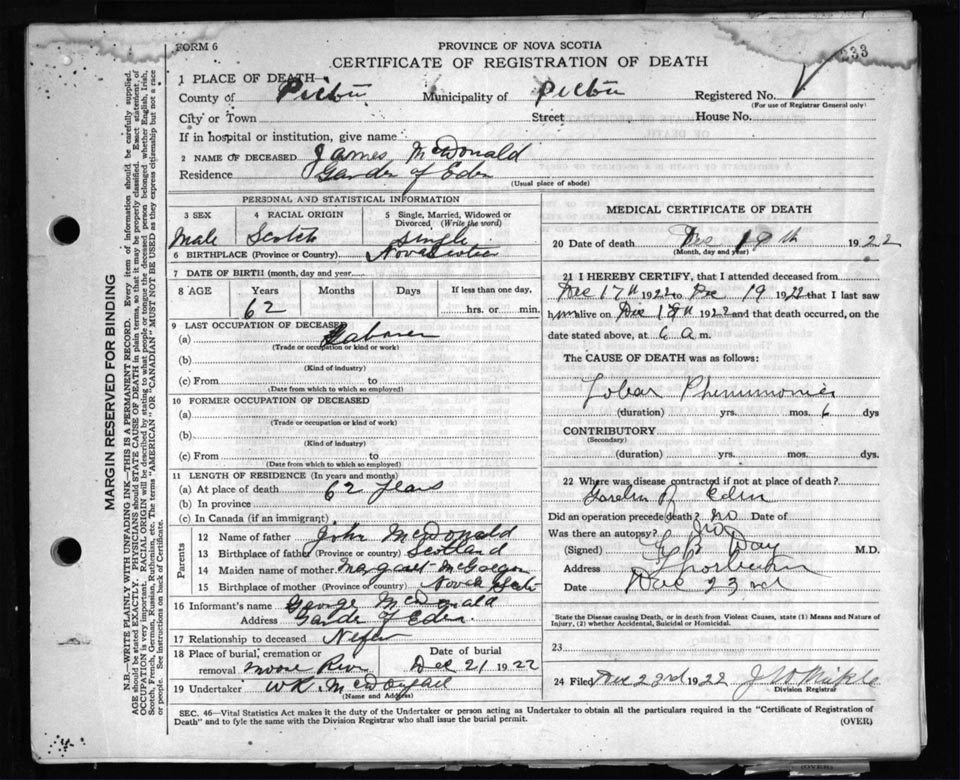 FORM 6
PROVINCE OF NOVA SCOTIA
233
CERTIFICATE OF REGISTRATION OF DEATH
1 PLACE OF DEATH
County of Pictou Municipality of Pictou Registered No.
(For use of Registrar General only)
City or Town Street House No.
If in hospital or institution, give name
2 NAME OF DECEASED James McDonald
Residence Garden of Eden
(Usual place of abode)
PERSONAL AND STATISTICAL INFORMATION
3 SEX 4 RACIAL ORIGIN 5 Single, Married, Widowed or Divorced (Write the word)
Male Scotch Single
6 BIRTHPLACE (Province or Country) Nova Scotia
7 DATE OF BIRTH (month, day and year)
8 AGE Years Months Days If less than one day,
62 hrs. or min.
9 LAST OCCUPATION OF DECEASED
(a) Laborer
(Trade or occupation or kind or work)
(b)
(Kind of industry)
(c) From to
(Date from which to which so employed)
10 FORMER OCCUPATION OF DECEASED
(a)
(Trade or occupation or kind of work)
(b)
(Kind of industry)
(c) From to
(Date from which to which so employed)
11 LENGTH OF RESIDENCE (In years and months)
(a) At place of death 62 years
(b) In province
(c) In Canada (if an immigrant)
Parents
12 Name of father John McDonald
13 Birthplace of father (Province or country) Scotland
14 Maiden name of mother Margaret McGregor
15 Birthplace of mother (Province or country) Nova Scotia
16 Informant's name George McDonald
Address Garden of Eden
17 Relationship to deceased
18 Place of burial, cremation or Date of burial
removal Moose River Dec 21 1922
19 Undertaker W R. McDougall
(Name and Address)
MEDICAL CERTIFICATE OF DEATH
20 Date of death Dec 19th 1922
(Month, day and year)
21 I HEREBY CERTIFY, that I attended deceased from
Dec 17th 1922 to Dec 19 1922 that I last saw
him alive on Dec 18th 1922 and that death occurred, on the
date stated above, at 6 a m.
The CAUSE OF DEATH was as follows:
Lobar Pneumonia
(duration) yrs. mos. 6 dys
CONTRIBUTORY
(Secondary)
(duration) yrs. mos. dys.
22 Where was disease contracted if not at place of death?
Garden of Eden
Did an operation precede death? no Date of
Was there an autopsy? no
(Signed) Day M.D.
Address
Date Dec 23rd
State the Disease causing Death, or in death from Violent Causes, state (1) Means and Nature
of Injury, (2) whether Accidental, Suicidal or Homicidal.
23
24 Filed Dec 23rd 1922
Division Registrar
SEC. 46—Vital Statistics Act makes it the duty of the Undertaker or person acting as Undertaker to obtain all the particulars required in the "Certificate of Registration of
Death" and to fyle the same with the Division Registrar who shall issue the burial permit.
(OVER)
MARGIN RESERVED FOR BINDING
N.B.—WRITE PLAINLY WITH UNFADING INK—THIS IS A PERMANENT RECORD. Every item of information should be carefully supplied.
AGE should be stated EXACTLY. PHYSICIANS should STATE CAUSE OF DEATH in plain terms, so that it may be properly classified. Exact statement of
OCCUPATION is very important. RACIAL ORIGIN will be described by stating to what people or tongue the deceased person belonged whether English, Irish,
Scotch, French, German, Russian, Ruthenian, etc. The terms "AMERICAN" OR "CANADIAN" MUST NOT BE USED as they express citizenship but not a race
or people. See instructions on back of Certificate.
(OVER)